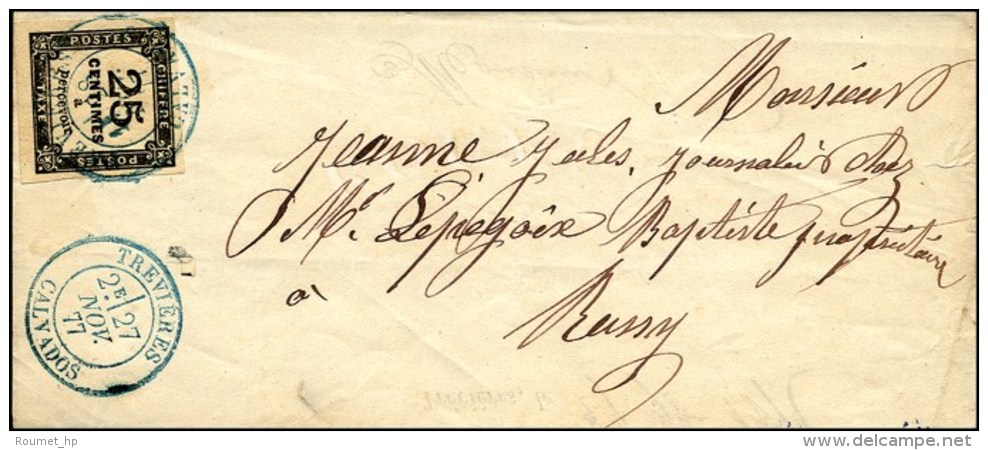 POSTES
CHIFFRE
25
CENTIMES
à
percevoir
TAXE
POSTES
Monsieur
Jeanne Jules, Journalier chez
Mr. Lépegoix Baptiste propriétaire
à
Russy
TREVIÈRES
2E 27
NOV.
77
CALVADOS
Roumet_hp